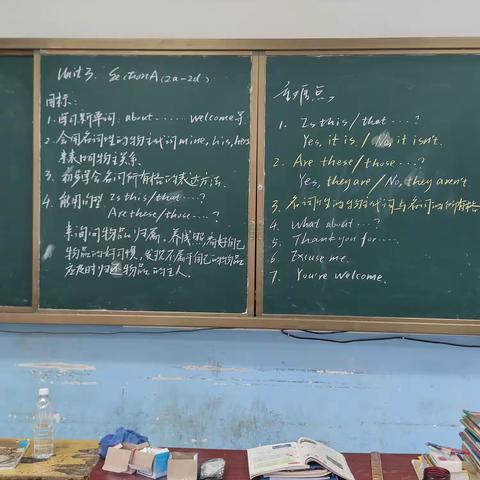 Unit 3. Section A (2a-2d)
目标:
1. 学习新单词: about ...... welcome等.
2. 会用名词性的物主代词 mine, his, hers
来表明物主关系.
3. 名词所有格的表达方法.
4. 能用句型 Is this/that ...?
Are these/those ...?
来询问物品归属. 养成照看好自己
物品的好习惯, 发现不属于自己的物品
应及时归还物品的主人.
重难点:
1. Is this/that ...?
Yes, it is. / No, it isn't.
2. Are these/those ...?
Yes, they are / No, they aren't.
3. 名词性的物主代词与名词的所有格
4. What about ...?
5. Thank you for ....
6. Excuse me.
7. You're welcome.